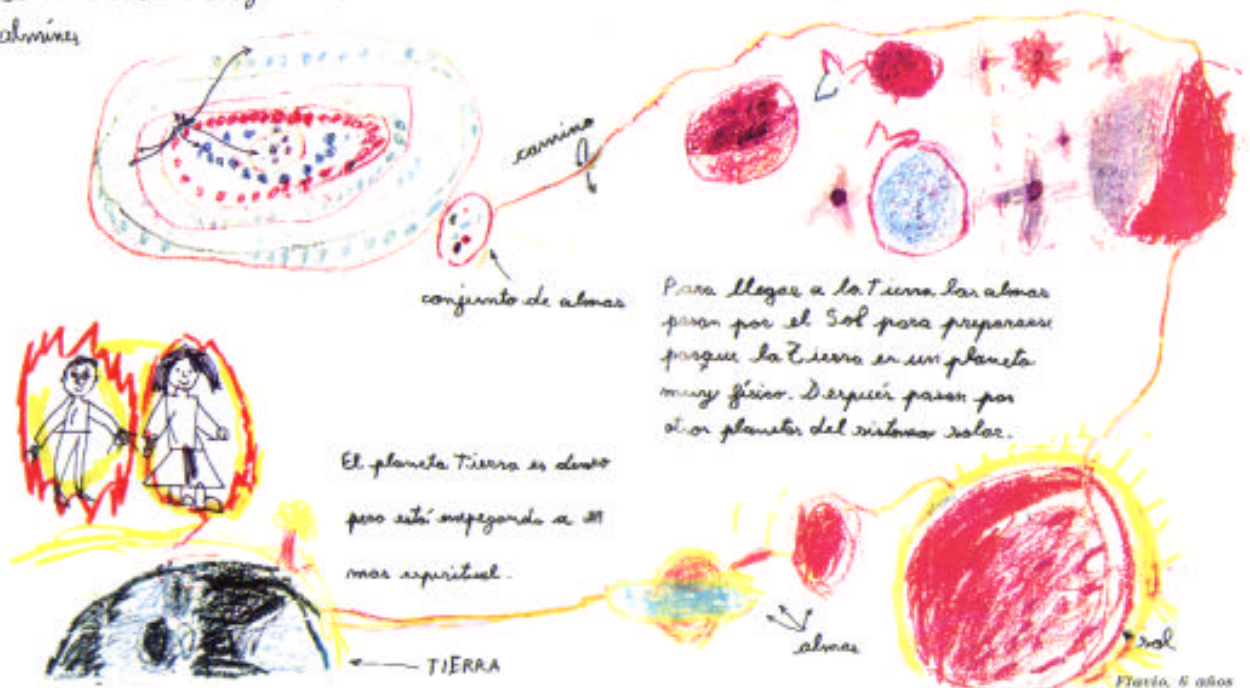 almines
camino
conjunto de almas
Para llegar a la Tierra las almas
pasan por el Sol para prepararse
porque la Tierra es un planeta
muy físico. Después pasan por
otros planetas del sistema solar.
El planeta Tierra es denso
pero está empezando a ser
mas espiritual.
almas
sol
TIERRA
Flavio, 6 años